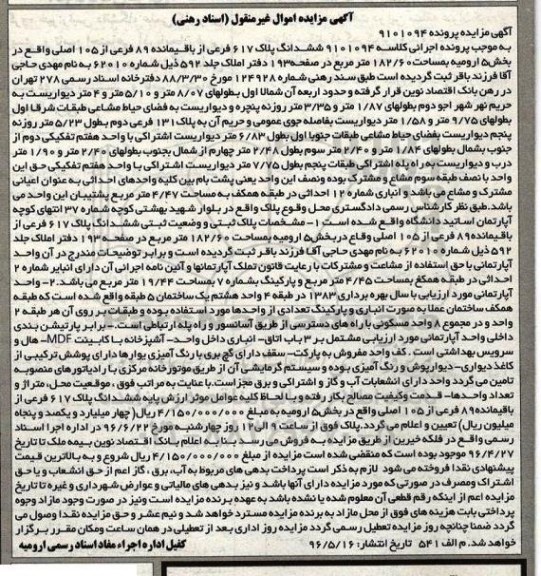 آگهی مزایده اموال غیرمنقول (اسناد رهنی)
آگهی مزایده پرونده ۹۱۰۱۰۹۴
به موجب پرونده اجرائی کلاسه ۹۱۰۱۰۹۴ ششدانگ پلاک ۶۱۷ فرعی از باقیمانده ۸۹ فرعی از ۱۰۵ اصلی واقع در
بخش۵ ارومیه بمساحت ۱۸۲/۶۰ متر مربع در صفحه۱۹۳ دفتر املاک جلد ۵۹۲ ذیل شماره ۶۲۰۱۰ به نام مهدی حاجی
آقا فرزند باقر ثبت گردیده است طبق سند رهنی شماره ۱۲۴۹۲۸ مورخ ۸۸/۳/۳۰ دفترخانه اسناد رسمی ۲۷۸ تهران
در رهن بانک اقتصاد نوین قرار گرفته و حدود اربعه آن شمالا اول بطولهای ۸/۰۷ متر و ۵/۱۰ متر و ۴ متر دیواریست به
حریم نهر شهر اجو دوم بطولهای ۱/۸۷ متر و ۳/۳۵ متر روزنه پنچره و دیواریست به فضای حیاط مشاعی طبقات شرقا اول
بطولهای ۹/۷۵ متر و ۱/۵۸ متر دیواریست بفاصله جوی عمومی و حریم آن به پلاک ۱۳۱ فرعی دوم بطول ۵/۲۳ متر روزنه
پنجم دیواریست بفضای حیاط مشاعی طبقات جنوبا اول بطول ۶/۸۳ متر دیواریست اشتراکی با واحد هفتم تفکیکی دوم از
جنوب بشمال بطولهای ۱/۸۴ متر و ۲/۴۰ متر سوم بطول ۲/۴۸ متر چهارم از شمال بجنوب بطولهای ۲/۴۰ متر و ۱/۹۰ متر
درب و دیواریست به راه پله اشتراکی طبقات پنجم بطول ۷/۷۵ متر دیواریست اشتراکی با واحد هفتم تفکیکی حق این
واحد با نصف طبقه سوم مشاع و مشترک بوده ونصف این واحد یعنی پشت بام بین کلیه واحدهای احداثی به عنوان اعیانی
مشترک و مشاع می باشد و انباری شماره ۱۲ احداثی در طبقه همکف به مساحت ۴/۴۷ متر مربع پشتیبان این واحد می
باشد.طبق نظر کارشناس رسمی دادگستری محل وقوع پلاک واقع در بلوار شهید بهشتی کوچه شماره ۳۷ انتهای کوچه
آپارتمان اساتید دانشگاه واقع شده است ۱- مشخصات پلاک ثبتی و وضعیت ثبتی ششدانگ پلاک ۶۱۷ فرعی از
باقیمانده۸۹ فرعی از ۱۰۵ اصلی وقاع دربخش۵ ارومیه بمساحت ۱۸۲/۶۰ متر مربع در صفحه ۱۹۳ دفتر املاک جلد
۵۹۲ ذیل شماره ۶۲۰۱۰ به نام مهدی حاجی آقا فرزند باقر ثبت گردیده است و برابر توضیحات مندرج در آن واحد
آپارتمانی با حق استفاده از مشاعت و مشترکات با رعایت قانون تملک آپارتمانها و آئین نامه اجرائی آن دارای انبابر شماره ۲
احداثی در طبقه همکف بمساحت ۴/۴۵ متر مربع و پارکینگ بشماره ۷ بمساحت ۱۹/۴۴ متر مربع می باشد.۲- واحد
آپارتمانی مورد ارزیابی با سال بهره برداری ۱۳۸۳ در طبقه ۴ واحد هشتم یک ساختمان ۵ طبقه واقع شده است که طبقه
همکف ساختمان عملا به صورت انباری و پارکینگ تعدادی از واحدها مورد استفاده بوده و طبقات بر روی آن هر طبقه ۲
واحد و در مجموع ۸ واحد مسکونی با راه های دسترسی از طریق آسانسور و راه پله ارتباطی است.- برابر پارتیشن بندی
داخلی واحد آپارتمانی مورد ارزیابی مشتمل بر ۳ باب اتاق- انباری داخل واحد- آشپزخانه با کابینت MDF- هال و
سرویس بهداشتی است . کف واحد مفروش به پارکت- سقف دارای گچ بری با رنگ آمیزی بوار‌ها دارای پوشش ترکیبی از
کاغذ دیواری- دیوارپوش و رنگ آمیزی بوده و سیستم گرمایشی آن از طریق موتورخانه مرکزی با رادیاتورهای منصوبه
تامین می گردد واحد دارای انشعابات آب و گاز و اشتراکی و برق مجزاست.با عنایت به مراتب فوق ، موقعیت محل، متراژ و
تعداد واحدها- قدمت وکیفیت مصالح بکار رفته و با لحاظ کلیه عوامل موثر ارزش پایه ششدانگ پلاک ۶۱۷ فرعی از
باقیمانده۸۹ فرعی از ۱۰۵ اصلی واقع در بخش۵ ارومیه به مبلغ ۴/۱۵۰/۰۰۰/۰۰۰ ریال( چهار میلیارد و یکصد و پنجاه
میلیون ریال) تعیین و اعلام می گردد.پلاک فوق از ساعت ۹ الی ۱۲ روز چهارشنبه مورخ ۹۶/۶/۲۲ در اداره اجرا اسناد
رسمی واقع در فلکه خیرین از طریق مزایده به فروش می رسد. بنا به اعلام بانک اقتصاد نوین بیمه ملک تا تاریخ
۹۶/۴/۲۷ موجود بوده است که منقضی شده است مزایده از مبلغ ۴/۱۵۰/۰۰۰/۰۰۰ ریال شروع و به بالاترین قیمت
پیشنهادی نقدا فروخته می شود لازم به ذکر است پرداخت بدهی های مربوط به آب، برق ، گاز اعم از حق انشعاب و یا حق
اشتراک ومصرف در صورتی که مورد مزایده دارای آنها باشد و نیز بدهی های مالیاتی و عوارض شهرداری و غیره تا تاریخ
مزایده اعم از اینکه رقم قطعی آن معلوم شده یا نشده باشد به عهده برنده مزایده است ونیز در صورت وجود مازاد وجوه
پرداختی بابت هزینه های فوق از محل مازاد به برنده مزایده مسترد خواهد شد و نیم عشر و حق مزایده نقدا وصول می
گردد ضمنا چنانچه روز مزایده تعطیل رسمی گردد مزایده روز اداری بعد از تعطیلی در همان ساعت ومکان مقرر برگزار
خواهد شد. م الف ۵۴۱ تاریخ انتشار: ۹۶/۵/۱۶ کفیل اداره اجراء مفاد اسناد رسمی ارومیه